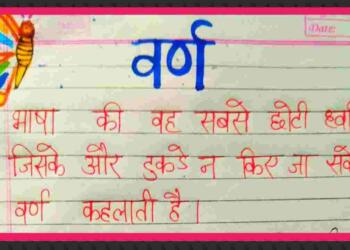 Date:
वर्ण
भाषा की वह सबसे छोटी
जिसके और टुकडे न किए जा
वर्ण कहलाती है।